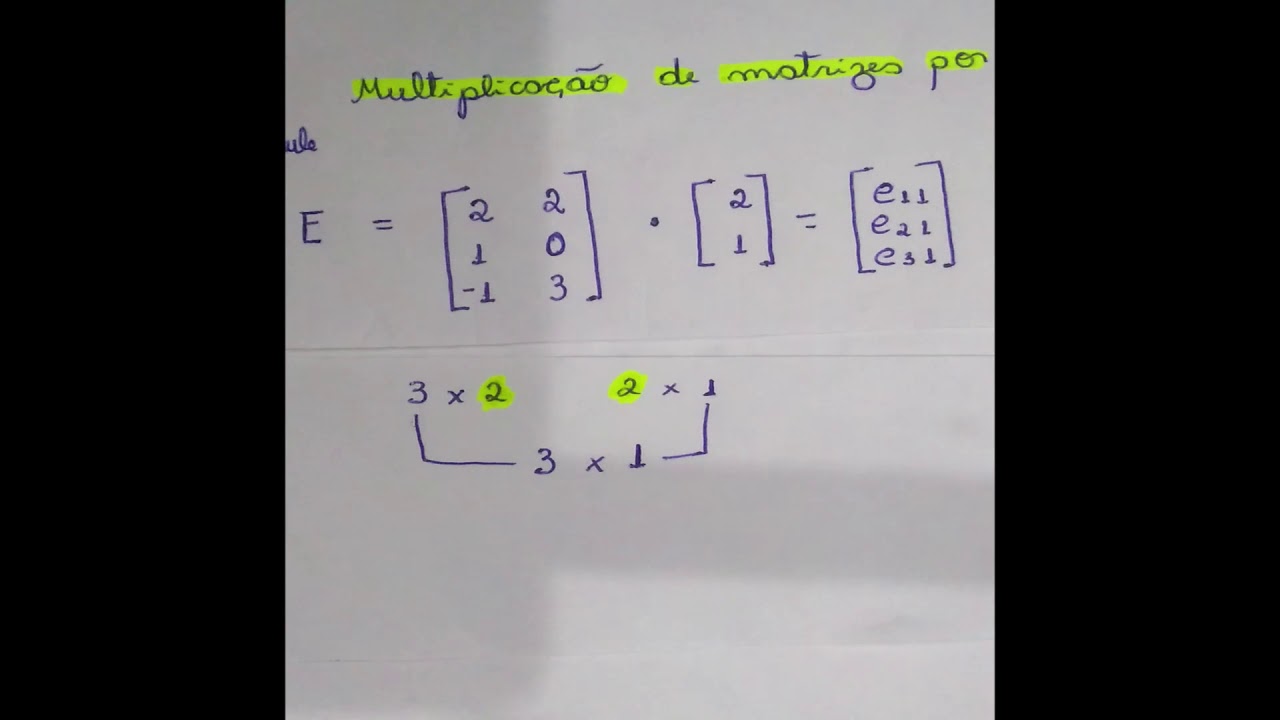 Multiplicação de matrizes por
ule
E = [ 2 2 ; 1 0 ; -1 3 ] . [ 2 ; 1 ] = [ e11 ; e21 ; e31 ]
3 x 2 2 x 1
3 x 1